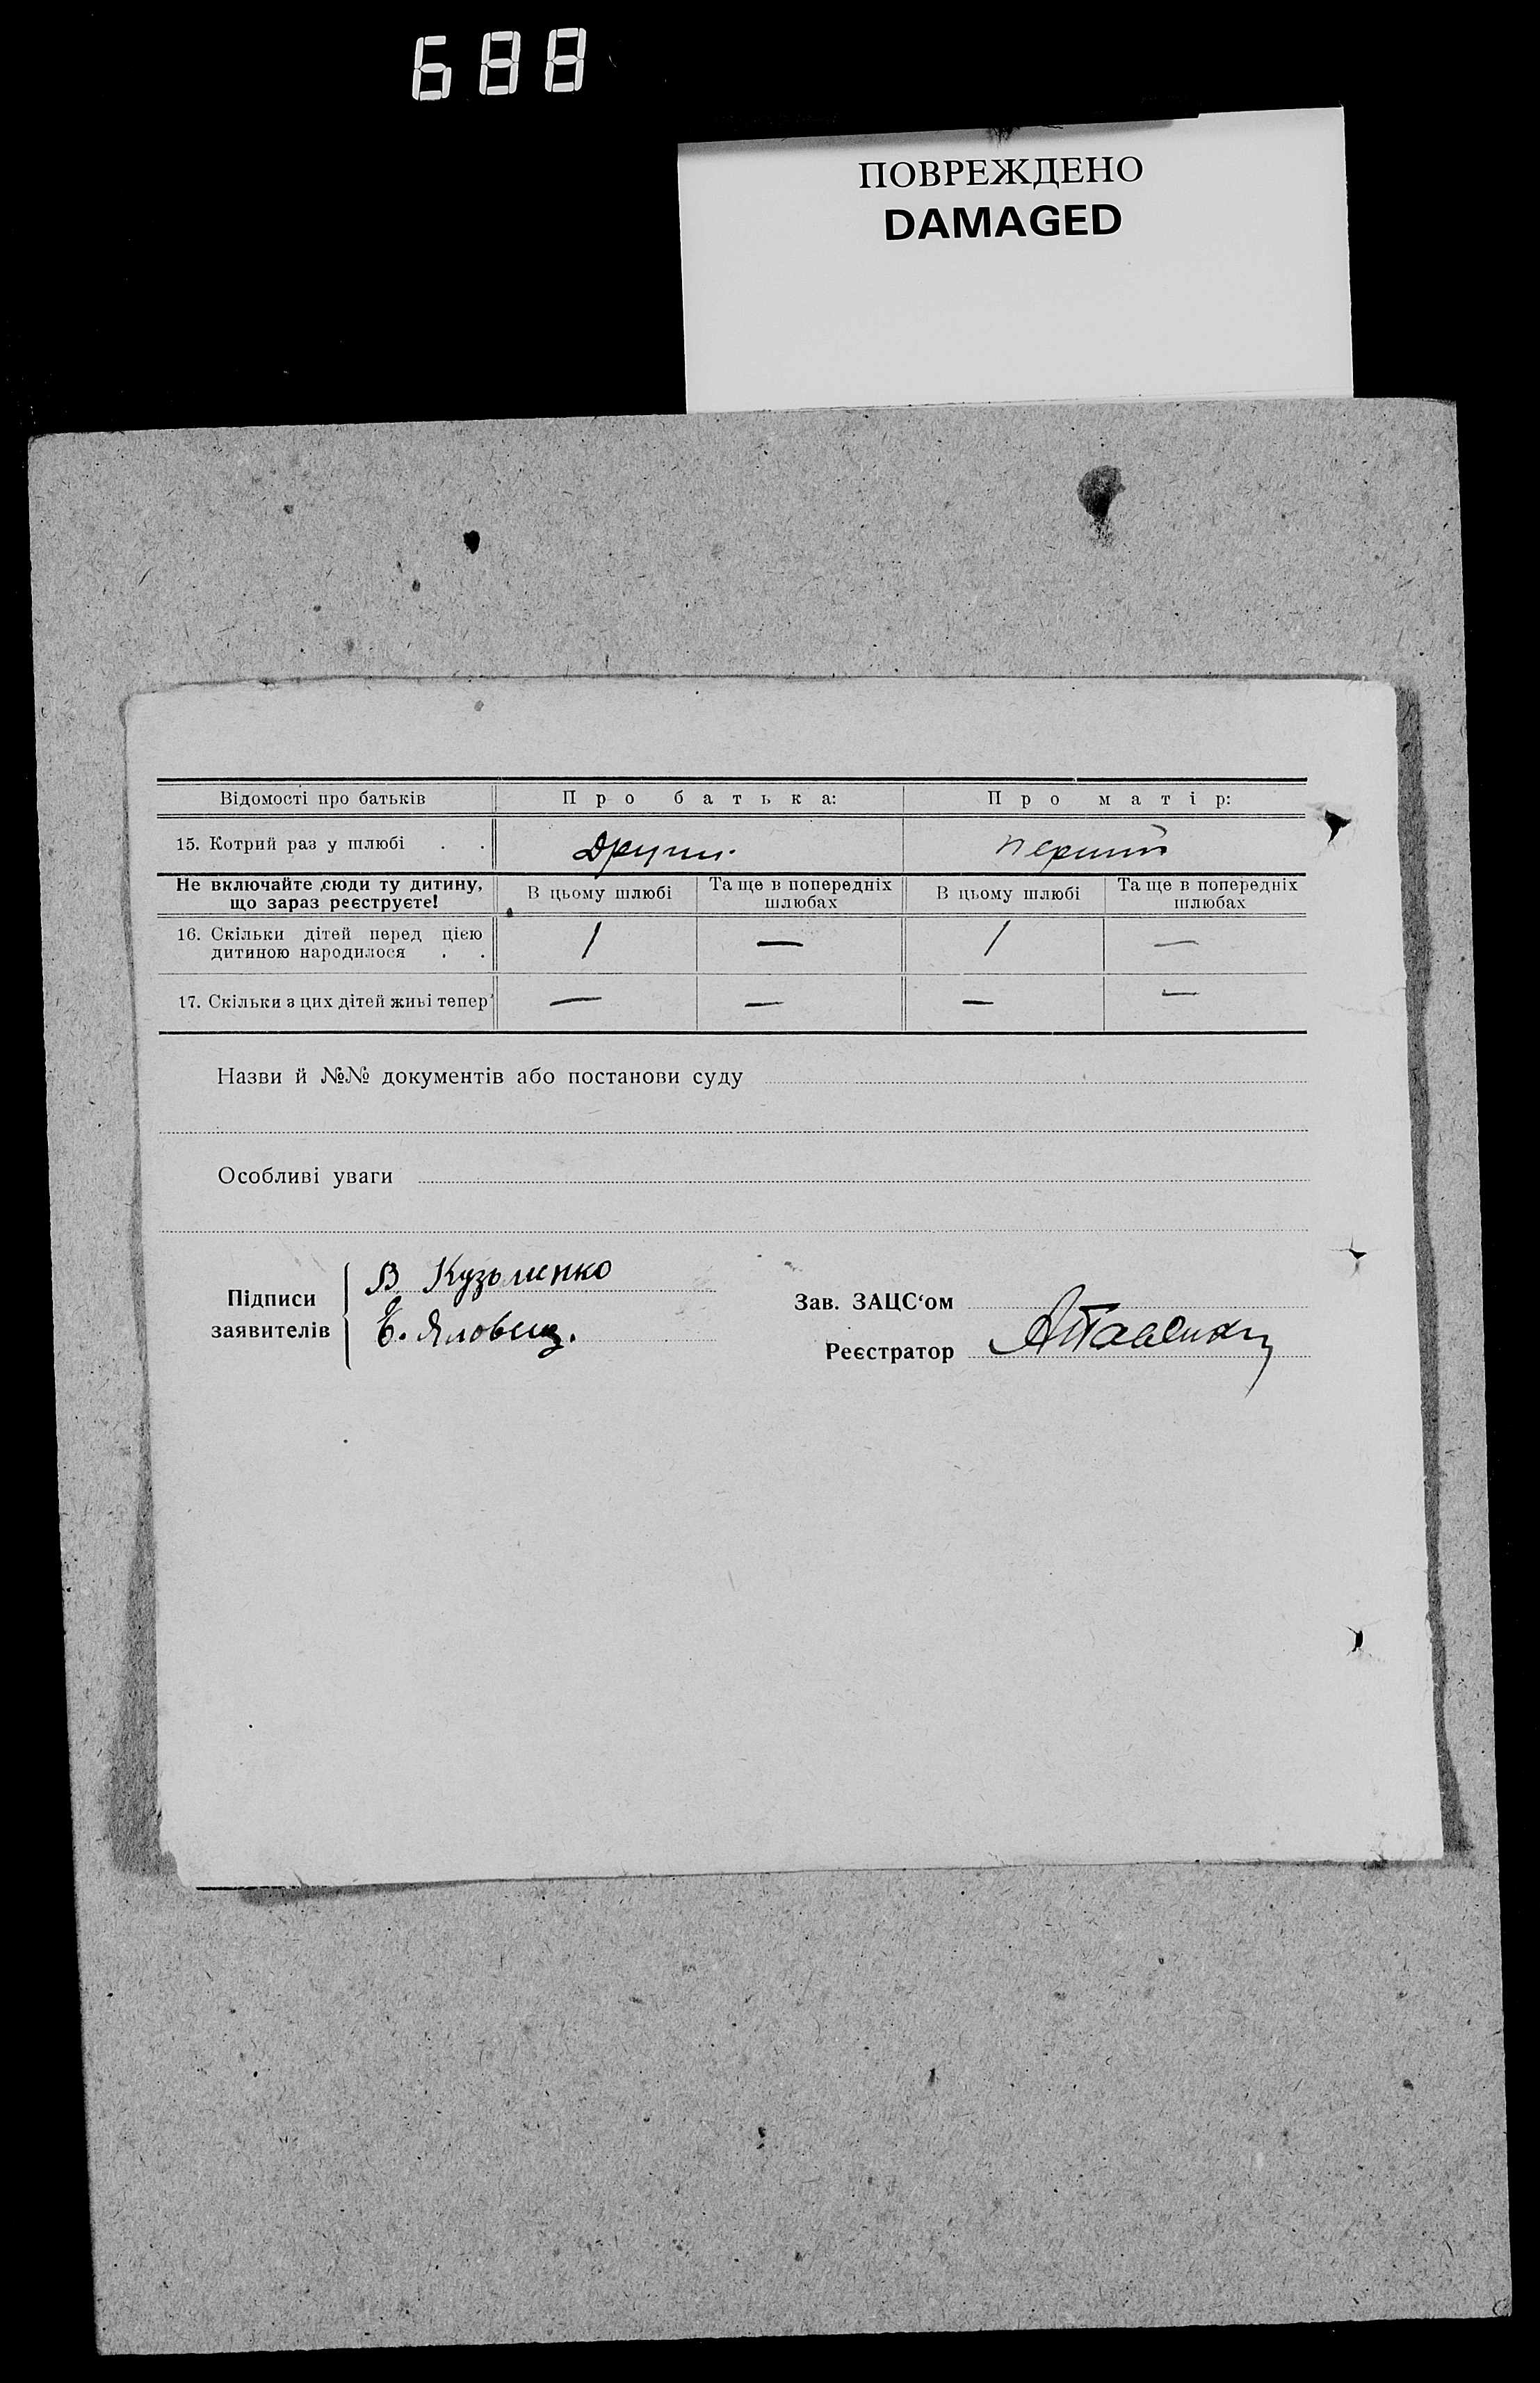 688
ПОВРЕЖДЕНО
DAMAGED
Відомості про батьків Про батька: Про матір:
15. Котрий раз у шлюбі . . Другий перший
Не включайте сюди ту дитину, що зараз реєструєте! В цьому шлюбі Та ще в попередніх шлюбах В цьому шлюбі Та ще в попередніх шлюбах
16. Скільки дітей перед цією
дитиною народилося . . 1 — 1 —
17. Скільки з цих дітей живі тепер — — — —
Назви й №№ документів або постанови суду
Особливі уваги
Підписи
заявителів
В Кузьменко
Є. Яловец.
Зав. ЗАЦС‘ом
Реєстратор